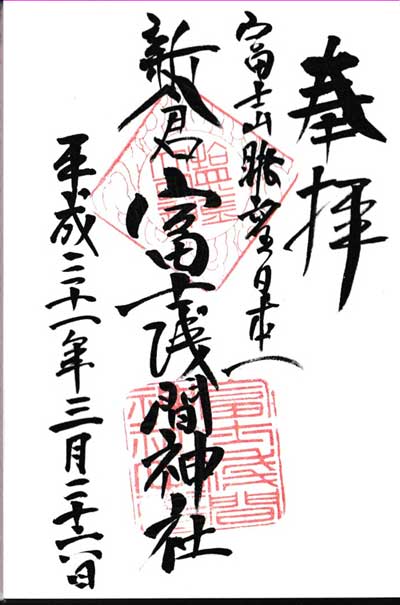 奉拝
富士山眺望日本一
新倉富士浅間神社
平成二十一年三月二十六日